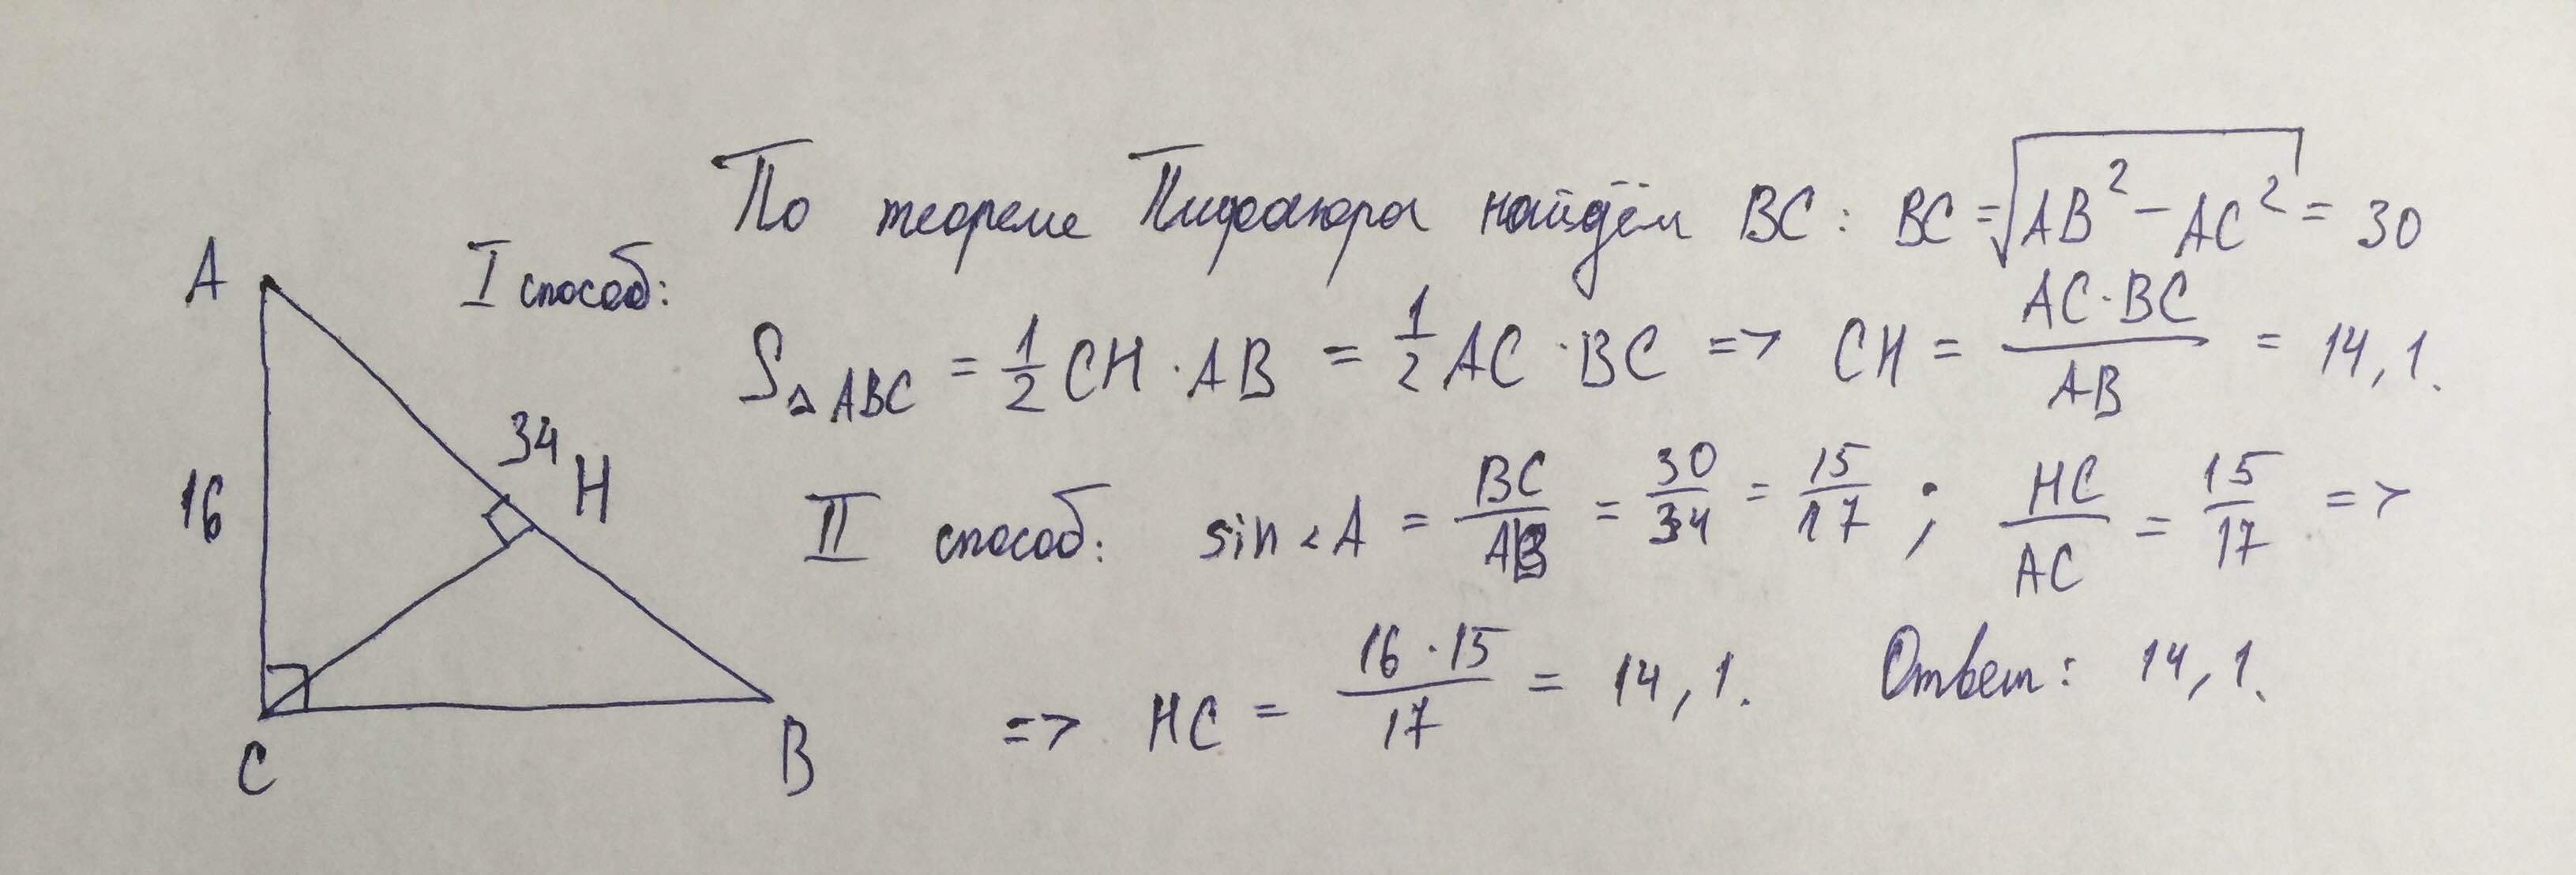 По теореме Пифагора найдём BC: BC = √(AB² - AC²) = 30
I способ:
S△ABC = 1/2 CH · AB = 1/2 AC · BC => CH = AC·BC/AB = 14,1.
II способ: sin∠A = BC/AB = 30/34 = 15/17 ; HC/AC = 15/17 =>
=> HC = 16·15/17 = 14,1. Ответ: 14,1.
A
34
H
16
C
B